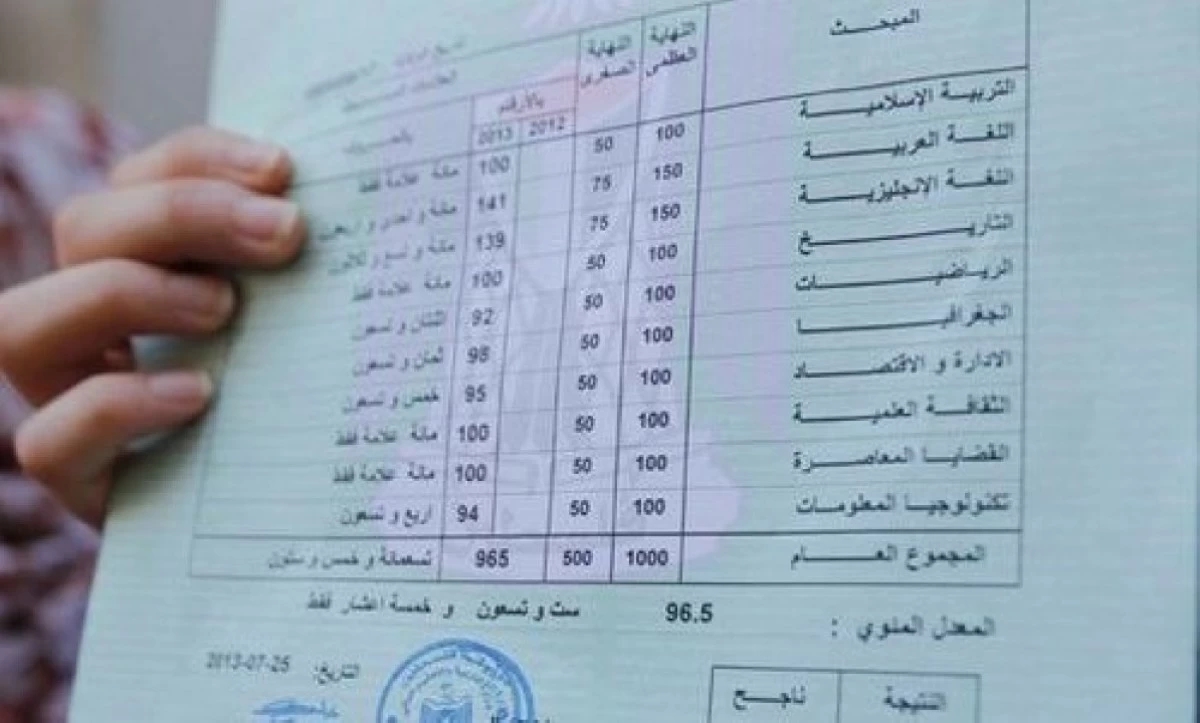 المبحث النهاية العظمى النهاية الصغرى بالأرقام
2012 2013
التربية الإسلامية 100 50 100 مائة علامة فقط
اللغة العربية 150 75 141 مائة و احدى و اربعون
اللغة الإنجليزية 150 75 139 مائة و تسع و ثلاثون
التاريخ 100 50 100 مائة علامة فقط
الرياضيات 100 50 92 اثنتان و تسعون
الجغرافيا 100 50 98 ثمان و تسعون
الادارة و الاقتصاد 100 50 95 خمس و تسعون
الثقافة العلمية 100 50 100 مائة علامة فقط
القضايا المعاصرة 100 50 100 مائة علامة فقط
تكنولوجيا المعلومات 100 50 94 اربع و تسعون
المجموع العام 1000 500 965 تسعمائة و خمس و ستون
المعدل المئوي : 96.5 ست و تسعون و خمسة اعشار فقط
التاريخ: 2013-07-25
النتيجة ناجح